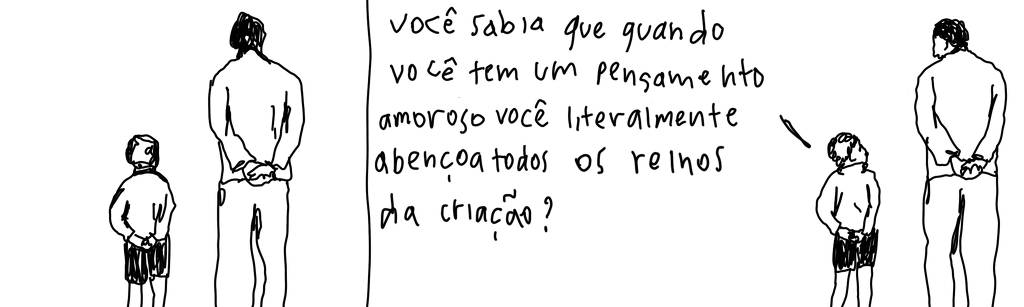 você sabia que quando
você tem um pensamento
amoroso você literalmente
abençoa todos os reinos
da criação?